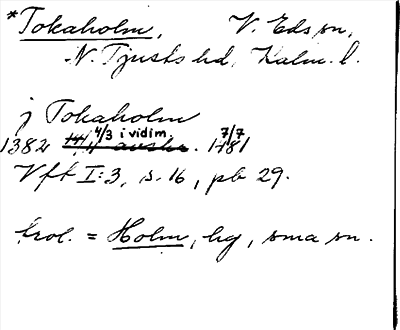 *Tokaholm, V. Eds sn,
N. Tjusts hd, Kalm. l.
j Tokaholm
1382 4/3 i vidim. 7/7 1781
Vft I:3, s. 16, pb 29.
trol. = Holm, hg, sma sn.